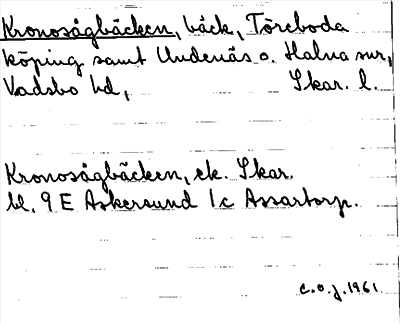 Kronosågbäcken, bäck, Töreboda
köping samt Undenäs o. Halna snr,
Vadsbo hd, Skar. l.
Kronosågbäcken, ek. Skar.
bl. 9 E Askersund 1c Assartorp.
c.o.j. 1961.